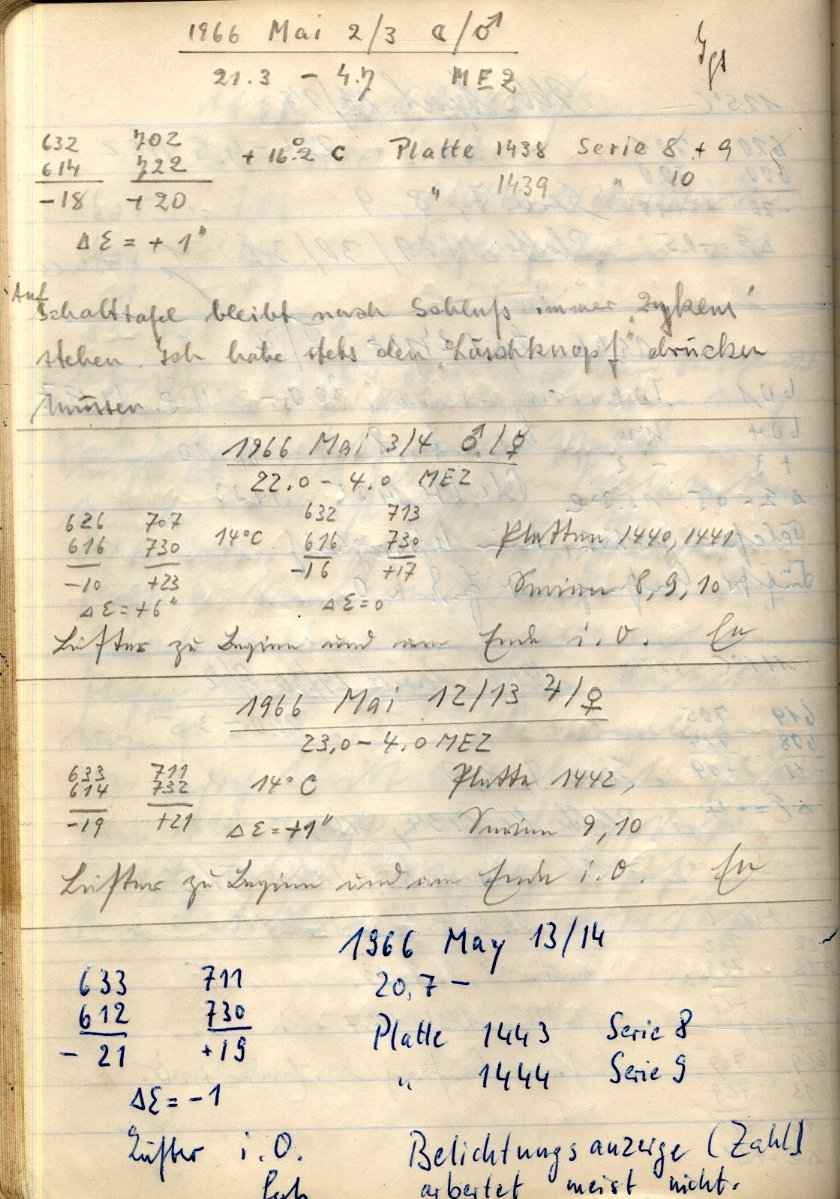 1966 Mai 2/3 ☾/♂
21.3 – 4.7 MEZ
632 702 +16°.2 C Platte 1438 Serie 8 + 9
614 722 " 1439 " 10
-18 +20
ΔΣ = + 1"
Auf Schalttafel bleibt nach Schluß immer „Zyklus"
stehen. Ich habe stets den „Löschknopf" drücken
müssen.
1966 Mai 3/4 ♂/☿
22.0 – 4.0 MEZ
626 707 14°C 632 713 Platten 1440, 1441
616 730 616 730
-10 +23 -16 +17 Serien 8, 9, 10
ΔΣ = +6" ΔΣ = 0
Lüfter zu Beginn und am Ende i.O.
1966 Mai 12/13 ♃/♀
23,0 – 4.0 MEZ
633 711 14°C Platte 1442,
614 732
-19 +21 ΔΣ = +1" Serien 9, 10
Lüfter zu Beginn und am Ende i.O.
1966 May 13/14
633 711 20,7 –
612 730 Platte 1443 Serie 8
- 21 +19 " 1444 Serie 9
ΔΣ = -1
Lüfter i.O. Belichtungsanzeige (Zahl)
arbeitet meist nicht.